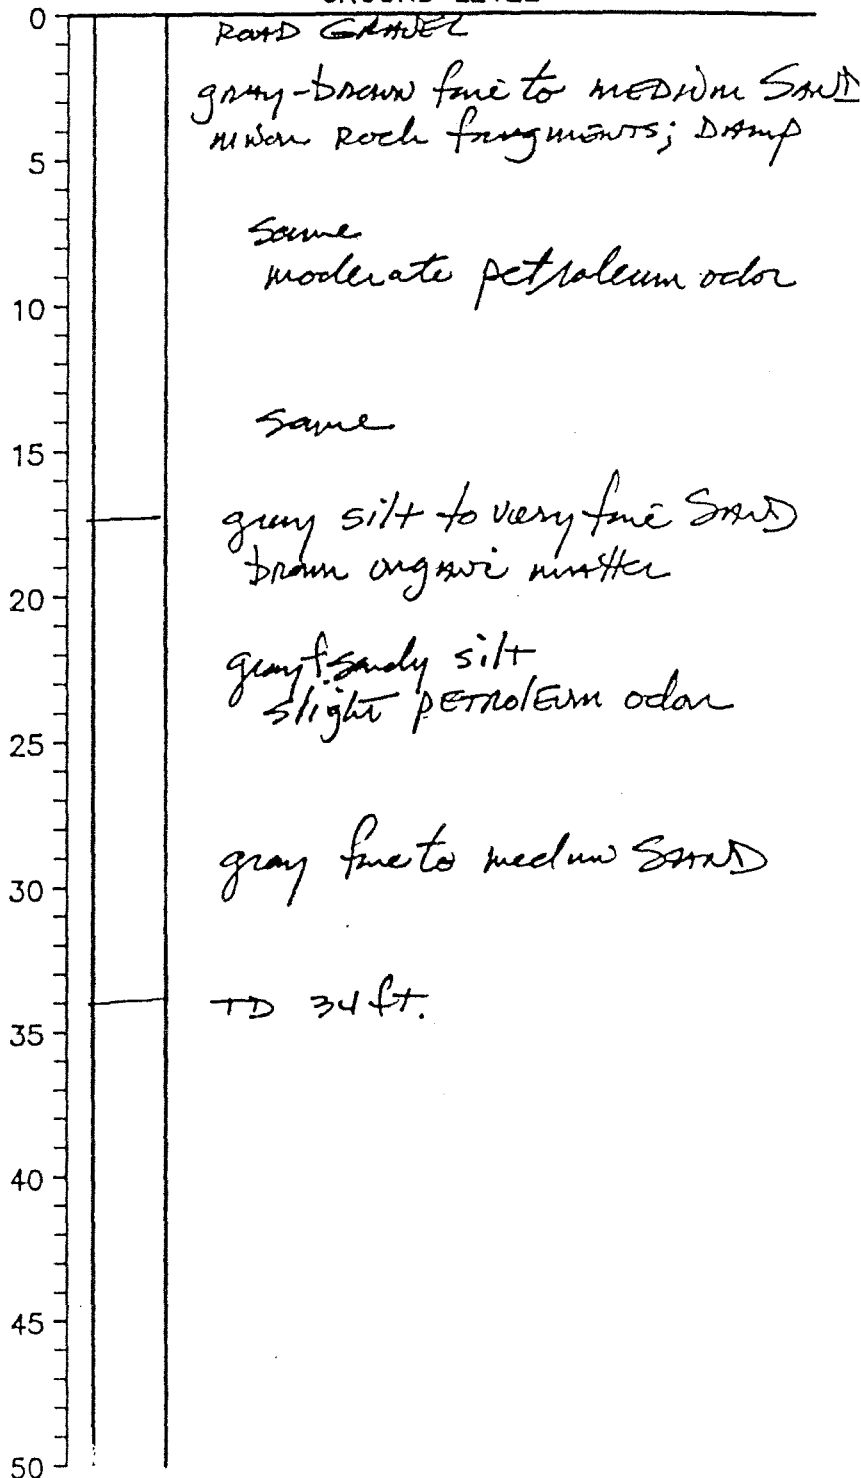 GROUND LEVEL
0
ROAD GRAVEL
gray-brown fine to MEDIUM SAND
minor Rock fragments; DAMP
5
same
moderate petroleum odor
10
same
15
gray silt to very fine SAND
brown organic matter
20
gray f. sandy silt
slight PETROlEUM odor
25
gray fine to medium SAND
30
TD 34 ft.
35
40
45
50